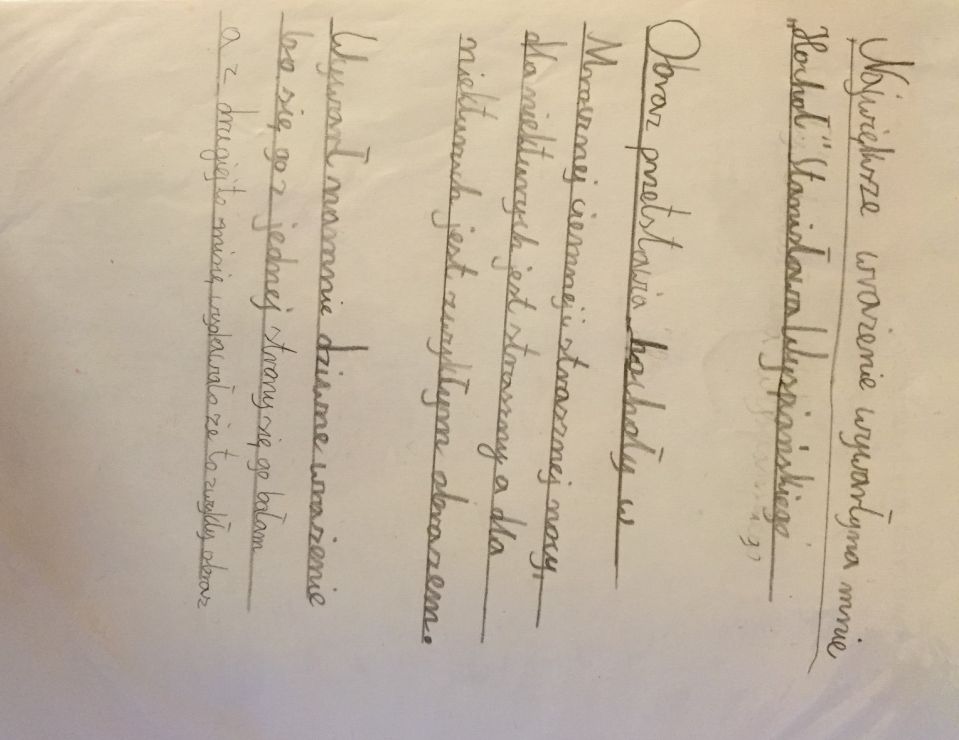 Największe wrażenie wywarłyna mnie
„Hochoł" Stanisława Wyspiańskiego
Obraz przetstawia hochoły w
Mrocznej ciemnej i strasznej nocy,
dla niekturych jest straszny a dla
niekturych jest zwykłym obrazem.
Wywarł namnie dziwne wrażenie
bo się go z jednej strony się go bałam
a z drugiej to mi się wydawało że to zwykły obraz